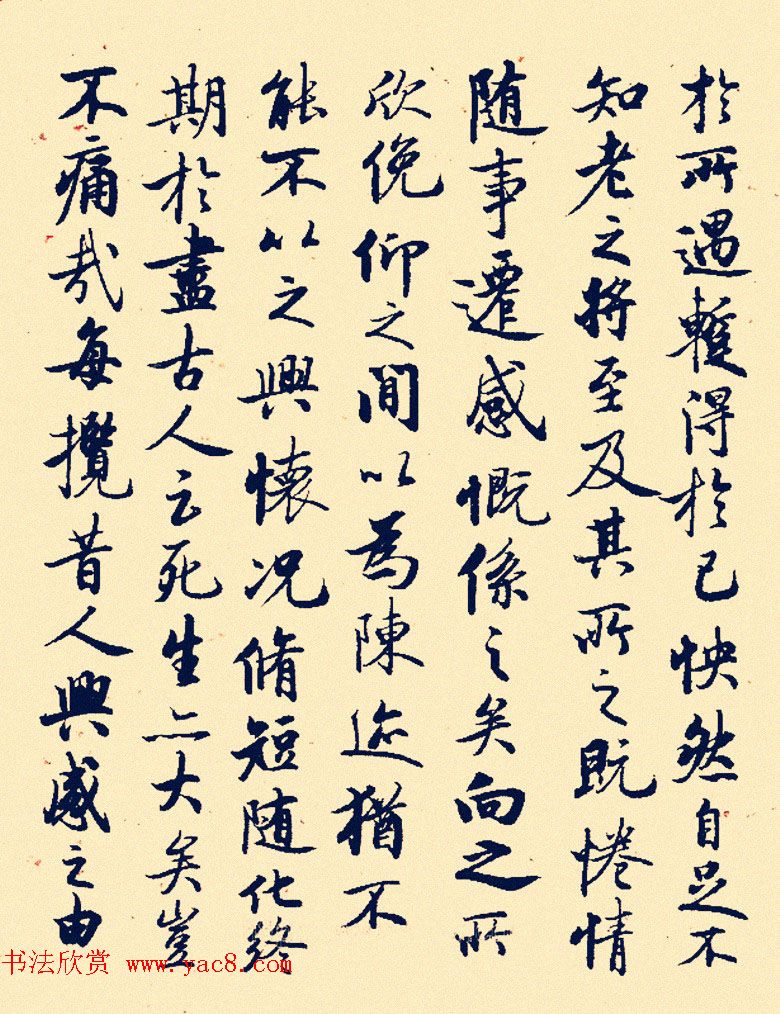 於所遇暫得於己怏然自足不
知老之將至及其所之既惓情
随事遷感慨係之矣向之所
欣俛仰之間以為陳迹猶不
能不以之興懷况脩短随化終
期於盡古人云死生亦大矣豈
不痛哉每攬昔人興感之由
书法欣赏 www.yac8.com